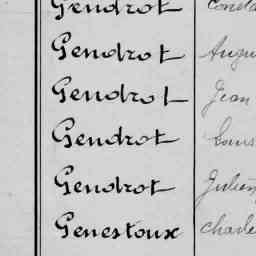 Gendrot
Gendrot
Gendrot Jean
Gendrot Louis
Gendrot Julien
Genestoux Charle